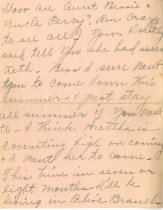 How are Aunt Minnie &
Uncle Percy? Am crazy
to see all of you. Dorothy
said tell you she had
. I sure want
you to come down this
summer & just stay
all summer if you want
to. I think Martha is
counting high on coming
& I want her to come.
This time in seven or
eight months I'll be
living in Olive Branch